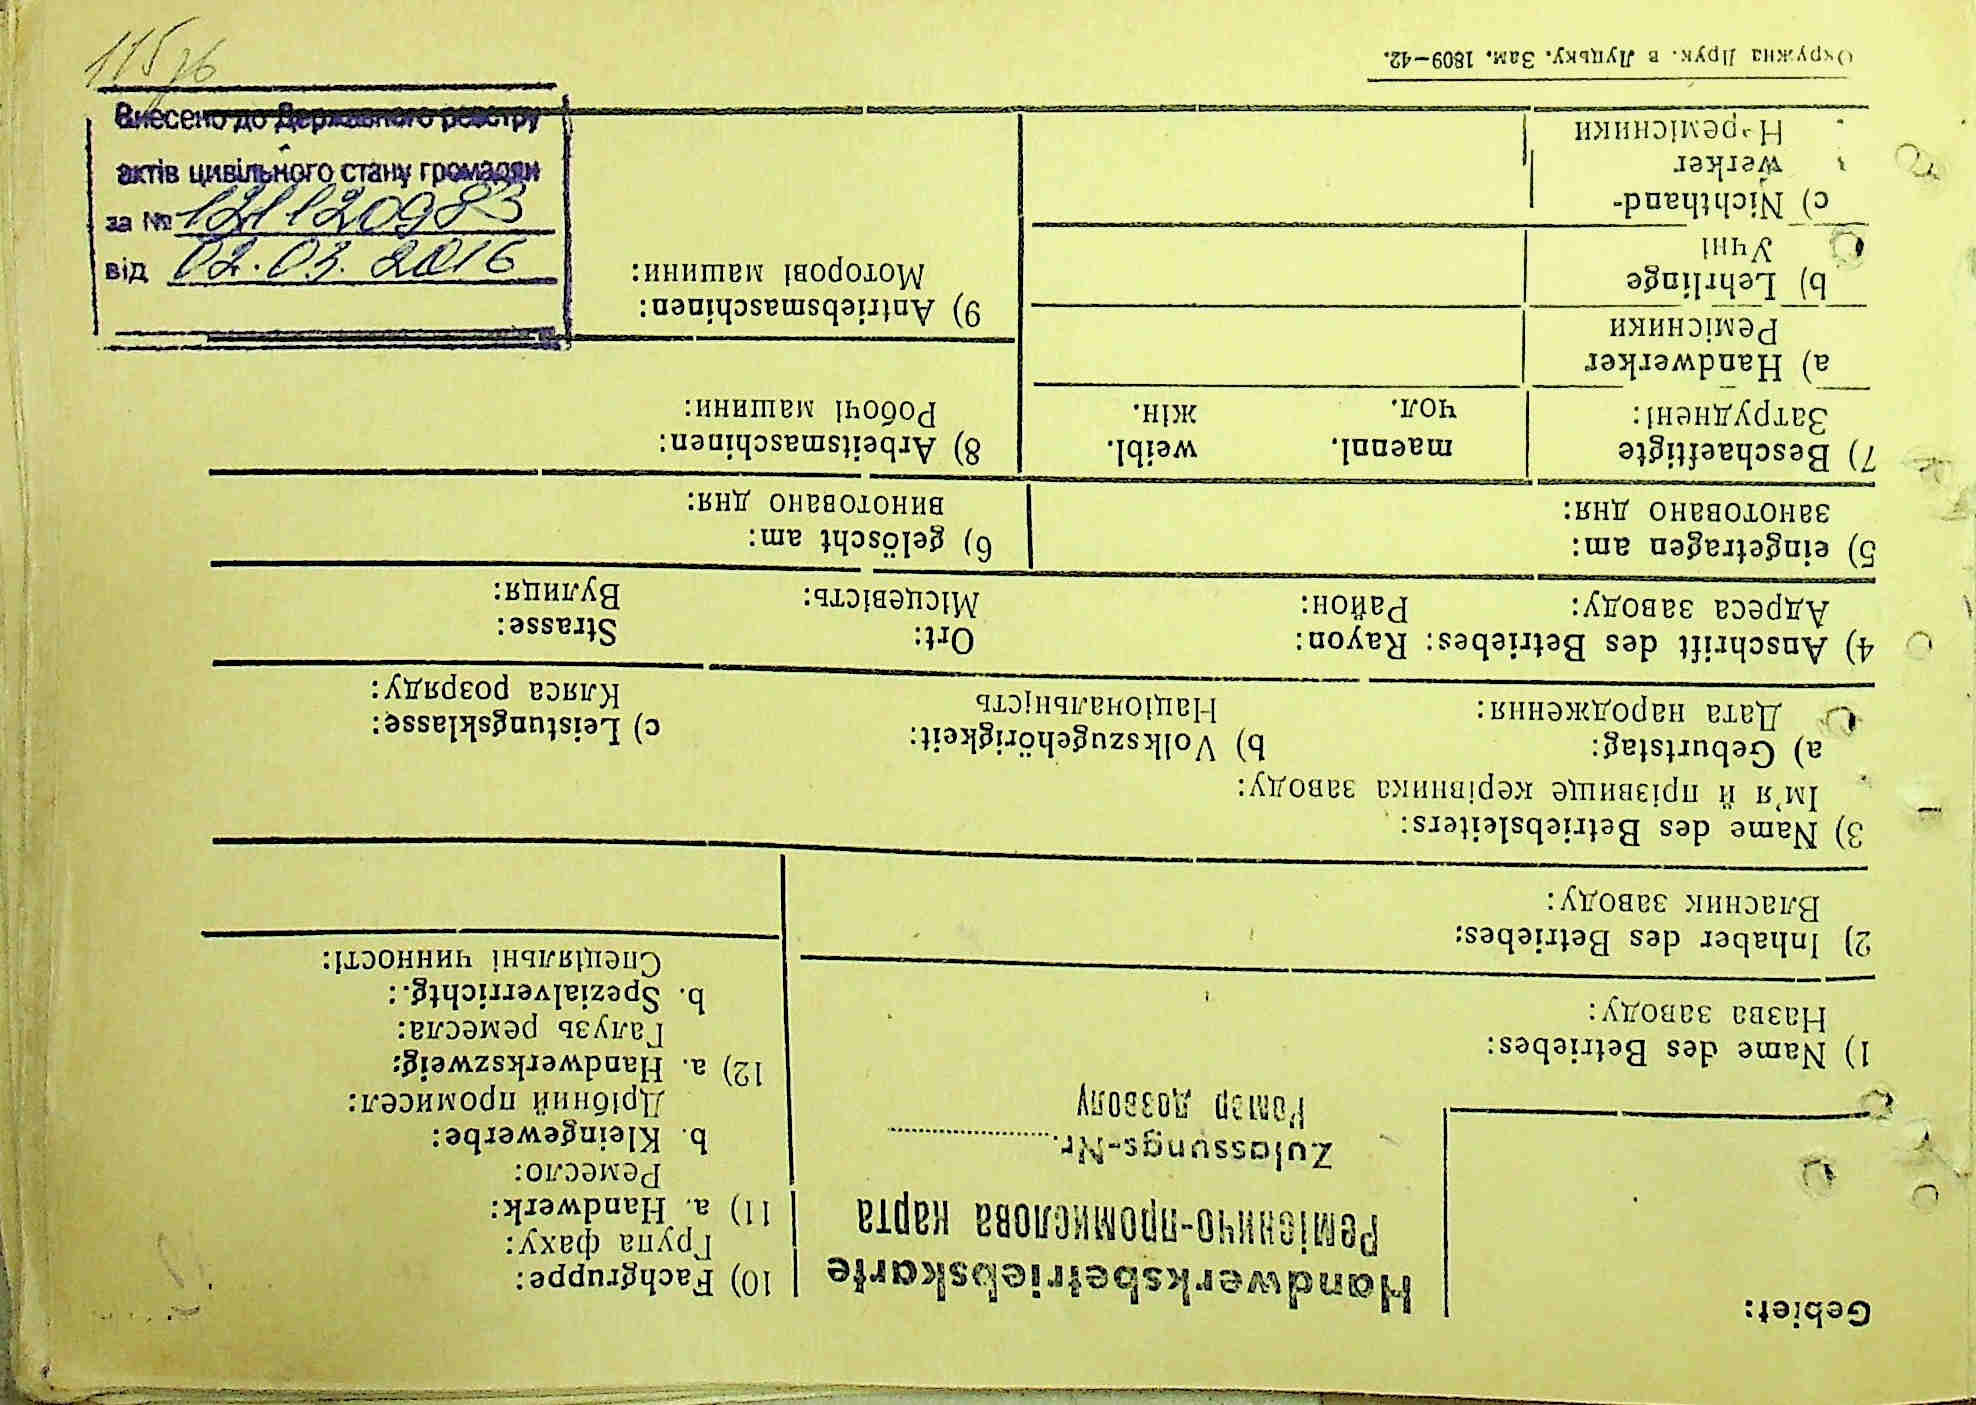 Gebiet:
Handwerksbetriebskarte
Ремісничо-промислова карта
Zulassungs-Nr.
Номер дозволу
10) Fachgruppe:
Група фаху:
11) a. Handwerk:
Ремесло:
b. Kleingewerbe:
Дрібний промисел:
12) a. Handwerkszweig:
Галузь ремесла:
b. Spezialverrichtg.:
Спеціяльні чинності:
1) Name des Betriebes:
Назва заводу:
2) Inhaber des Betriebes:
Власник заводу:
3) Name des Betriebsleiters:
Ім'я й прізвище керівника заводу:
a) Geburtstag: b) Volkszugehörigkeit: c) Leistungsklasse:
Дата народження: Національність Кляса розряду:
4) Anschrift des Betriebes: Rayon: Ort: Strasse:
Адреса заводу: Район: Місцевість: Вулиця:
5) eingetragen am: 6) gelöscht am:
занотовано дня: винотовано дня:
7) Beschaeftigte maennl. weibl.
Затруднені: чол. жін.
8) Arbeitsmaschinen:
Робочі машини:
a) Handwerker
Ремісники
b) Lehrlinge
Учні
c) Nichthand-
werker
Н-ремісники
9) Antriebsmaschinen:
Моторові машини:
Окружна Друк. в Луцьку. Зам. 1809—42.
Внесено до Державного реєстру
актів цивільного стану громадян
за № 121120983
від 02.03.2016